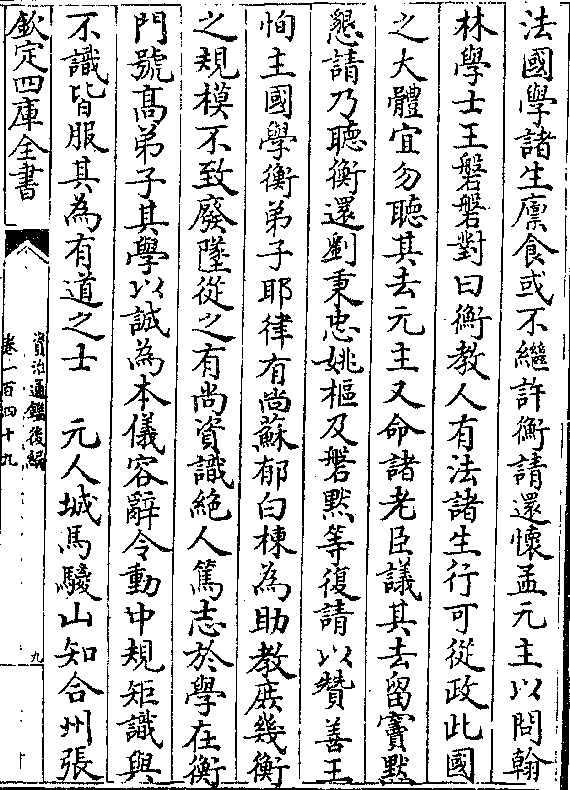 法國學諸生廩食或不繼許衡請還懷孟元主以問翰
林學士王磐磐對曰衡教人有法諸生行可從政此國
之大體宜勿聽其去元主又命諸老臣議其去留竇默
懇請乃聽衡還劉秉忠姚樞及磐默等復請以贊善王
恂主國學衡弟子耶律有尚蘇郁白棟為助教庶幾衡
之規模不致廢墜從之有尚資識絶人篤志於學在衡
門號髙弟子其學以誠為本儀容辭令動中規矩識與
不識皆服其為有道之士　元人城馬騣山知合州張
欽定四庫全書
資治通鑑後編
卷一百四十九
九